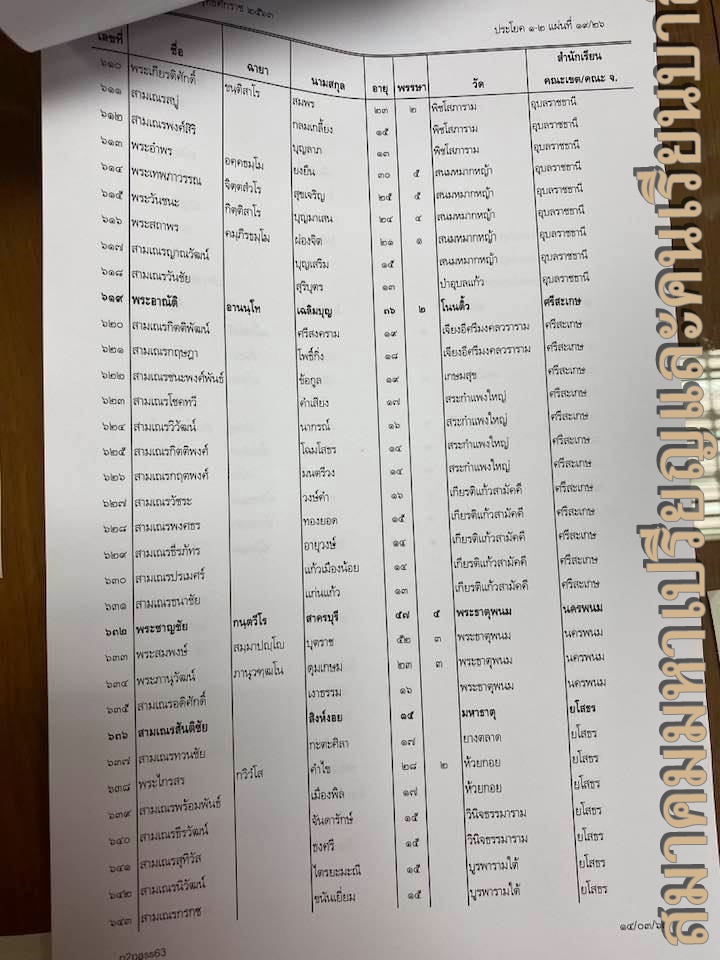 พุทธศักราช ๒๕๖๓
ประโยค ๑-๒ แผ่นที่ ๑๙/๒๖
เลขที่ ชื่อ ฉายา นามสกุล อายุ พรรษา วัด สำนักเรียน
คณะเขต/คณะ จ.
๖๑๐ พระเกียรติศักดิ์ ขนฺติสาโร สมพร ๒๓ ๒ พิชโสภาราม อุบลราชธานี
๖๑๑ สามเณรสปู่ กลมเกลี้ยง ๑๕ พิชโสภาราม อุบลราชธานี
๖๑๒ สามเณรพงศ์สิริ บุญลาภ ๑๓ พิชโสภาราม อุบลราชธานี
๖๑๓ พระอำพร อคฺคธมฺโม ยงยืน ๓๐ ๕ สนมหมากหญ้า อุบลราชธานี
๖๑๔ พระเทพภาวรรณ จิตฺตสํวโร สุขเจริญ ๒๕ ๕ สนมหมากหญ้า อุบลราชธานี
๖๑๕ พระวันชนะ กิตฺติสาโร บุญมาเสน ๒๔ ๔ สนมหมากหญ้า อุบลราชธานี
๖๑๖ พระสถาพร คมฺภีรธมฺโม ผ่องจิต ๒๑ ๑ สนมหมากหญ้า อุบลราชธานี
๖๑๗ สามเณรญาณวัฒน์ บุญเสริม ๑๕ สนมหมากหญ้า อุบลราชธานี
๖๑๘ สามเณรวันชัย สุริบุตร ๑๓ ป่าอุบลแก้ว อุบลราชธานี
๖๑๙ พระอาณัติ อานนฺโท เฉลิมบุญ ๓๖ ๒ โนนติ้ว ศรีสะเกษ
๖๒๐ สามเณรกิตติพัฒน์ ศรีสงคราม ๑๙ เจียงอีศรีมงคลวราราม ศรีสะเกษ
๖๒๑ สามเณรกฤษฎา โพธิ์กิ่ง ๑๘ เจียงอีศรีมงคลวราราม ศรีสะเกษ
๖๒๒ สามเณรชนะพงศ์พันธ์ ข้อกูล ๑๙ เกษมสุข ศรีสะเกษ
๖๒๓ สามเณรโชคทวี คำเสียง ๑๗ สระกำแพงใหญ่ ศรีสะเกษ
๖๒๔ สามเณรวิวัฒน์ นากรณ์ ๑๖ สระกำแพงใหญ่ ศรีสะเกษ
๖๒๕ สามเณรกิตติพงศ์ โฉมโสธร ๑๔ สระกำแพงใหญ่ ศรีสะเกษ
๖๒๖ สามเณรกฤตพงศ์ มนตรีวง ๑๔ สระกำแพงใหญ่ ศรีสะเกษ
๖๒๗ สามเณรวัชระ วงษ์คำ ๑๖ เกียรติแก้วสามัคคี ศรีสะเกษ
๖๒๘ สามเณรพงศธร ทองยอด ๑๕ เกียรติแก้วสามัคคี ศรีสะเกษ
๖๒๙ สามเณรธีรภัทร อายุวงษ์ ๑๔ เกียรติแก้วสามัคคี ศรีสะเกษ
๖๓๐ สามเณรปรเมศร์ แก้วเมืองน้อย ๑๔ เกียรติแก้วสามัคคี ศรีสะเกษ
๖๓๑ สามเณรธนาชัย แก่นแก้ว ๑๓ เกียรติแก้วสามัคคี ศรีสะเกษ
๖๓๒ พระชาญชัย กนฺตวีโร สาครบุรี ๔๗ ๕ พระธาตุพนม นครพนม
๖๓๓ พระสมพงษ์ สมฺมาปญฺโญ บุตราช ๕๒ ๓ พระธาตุพนม นครพนม
๖๓๔ พระภานุวัฒน์ ภานุวฑฺฒโน ตุมเกษม ๒๓ ๓ พระธาตุพนม นครพนม
๖๓๕ สามเณรอดิศักดิ์ เงาธรรม ๑๖ พระธาตุพนม นครพนม
๖๓๖ สามเณรสันติชัย สิงห์งอย ๑๕ มหาธาตุ ยโสธร
๖๓๗ สามเณรทวนชัย กะตะศิลา ๑๗ ยางตลาด ยโสธร
๖๓๘ พระไกรสร กวิวํโส คำไข ๒๘ ๒ ห้วยกอย ยโสธร
๖๓๙ สามเณรพร้อมพันธ์ เมืองพิล ๑๗ ห้วยกอย ยโสธร
๖๔๐ สามเณรธีรวัฒน์ จันดารักษ์ ๑๕ วินิจธรรมาราม ยโสธร
๖๔๑ สามเณรสุทิวัส ธงศรี ๑๕ วินิจธรรมาราม ยโสธร
๖๔๒ สามเณรนิวัฒน์ ไตรยะมะณี ๑๕ บูรพารามใต้ ยโสธร
๖๔๓ สามเณรกรกช ขนันเยี่ยม ๑๕ บูรพารามใต้ ยโสธร
๑๔/๐๓/๖
p2pass63
สมาคมมหาเปรียญและคนเรียนบาลี